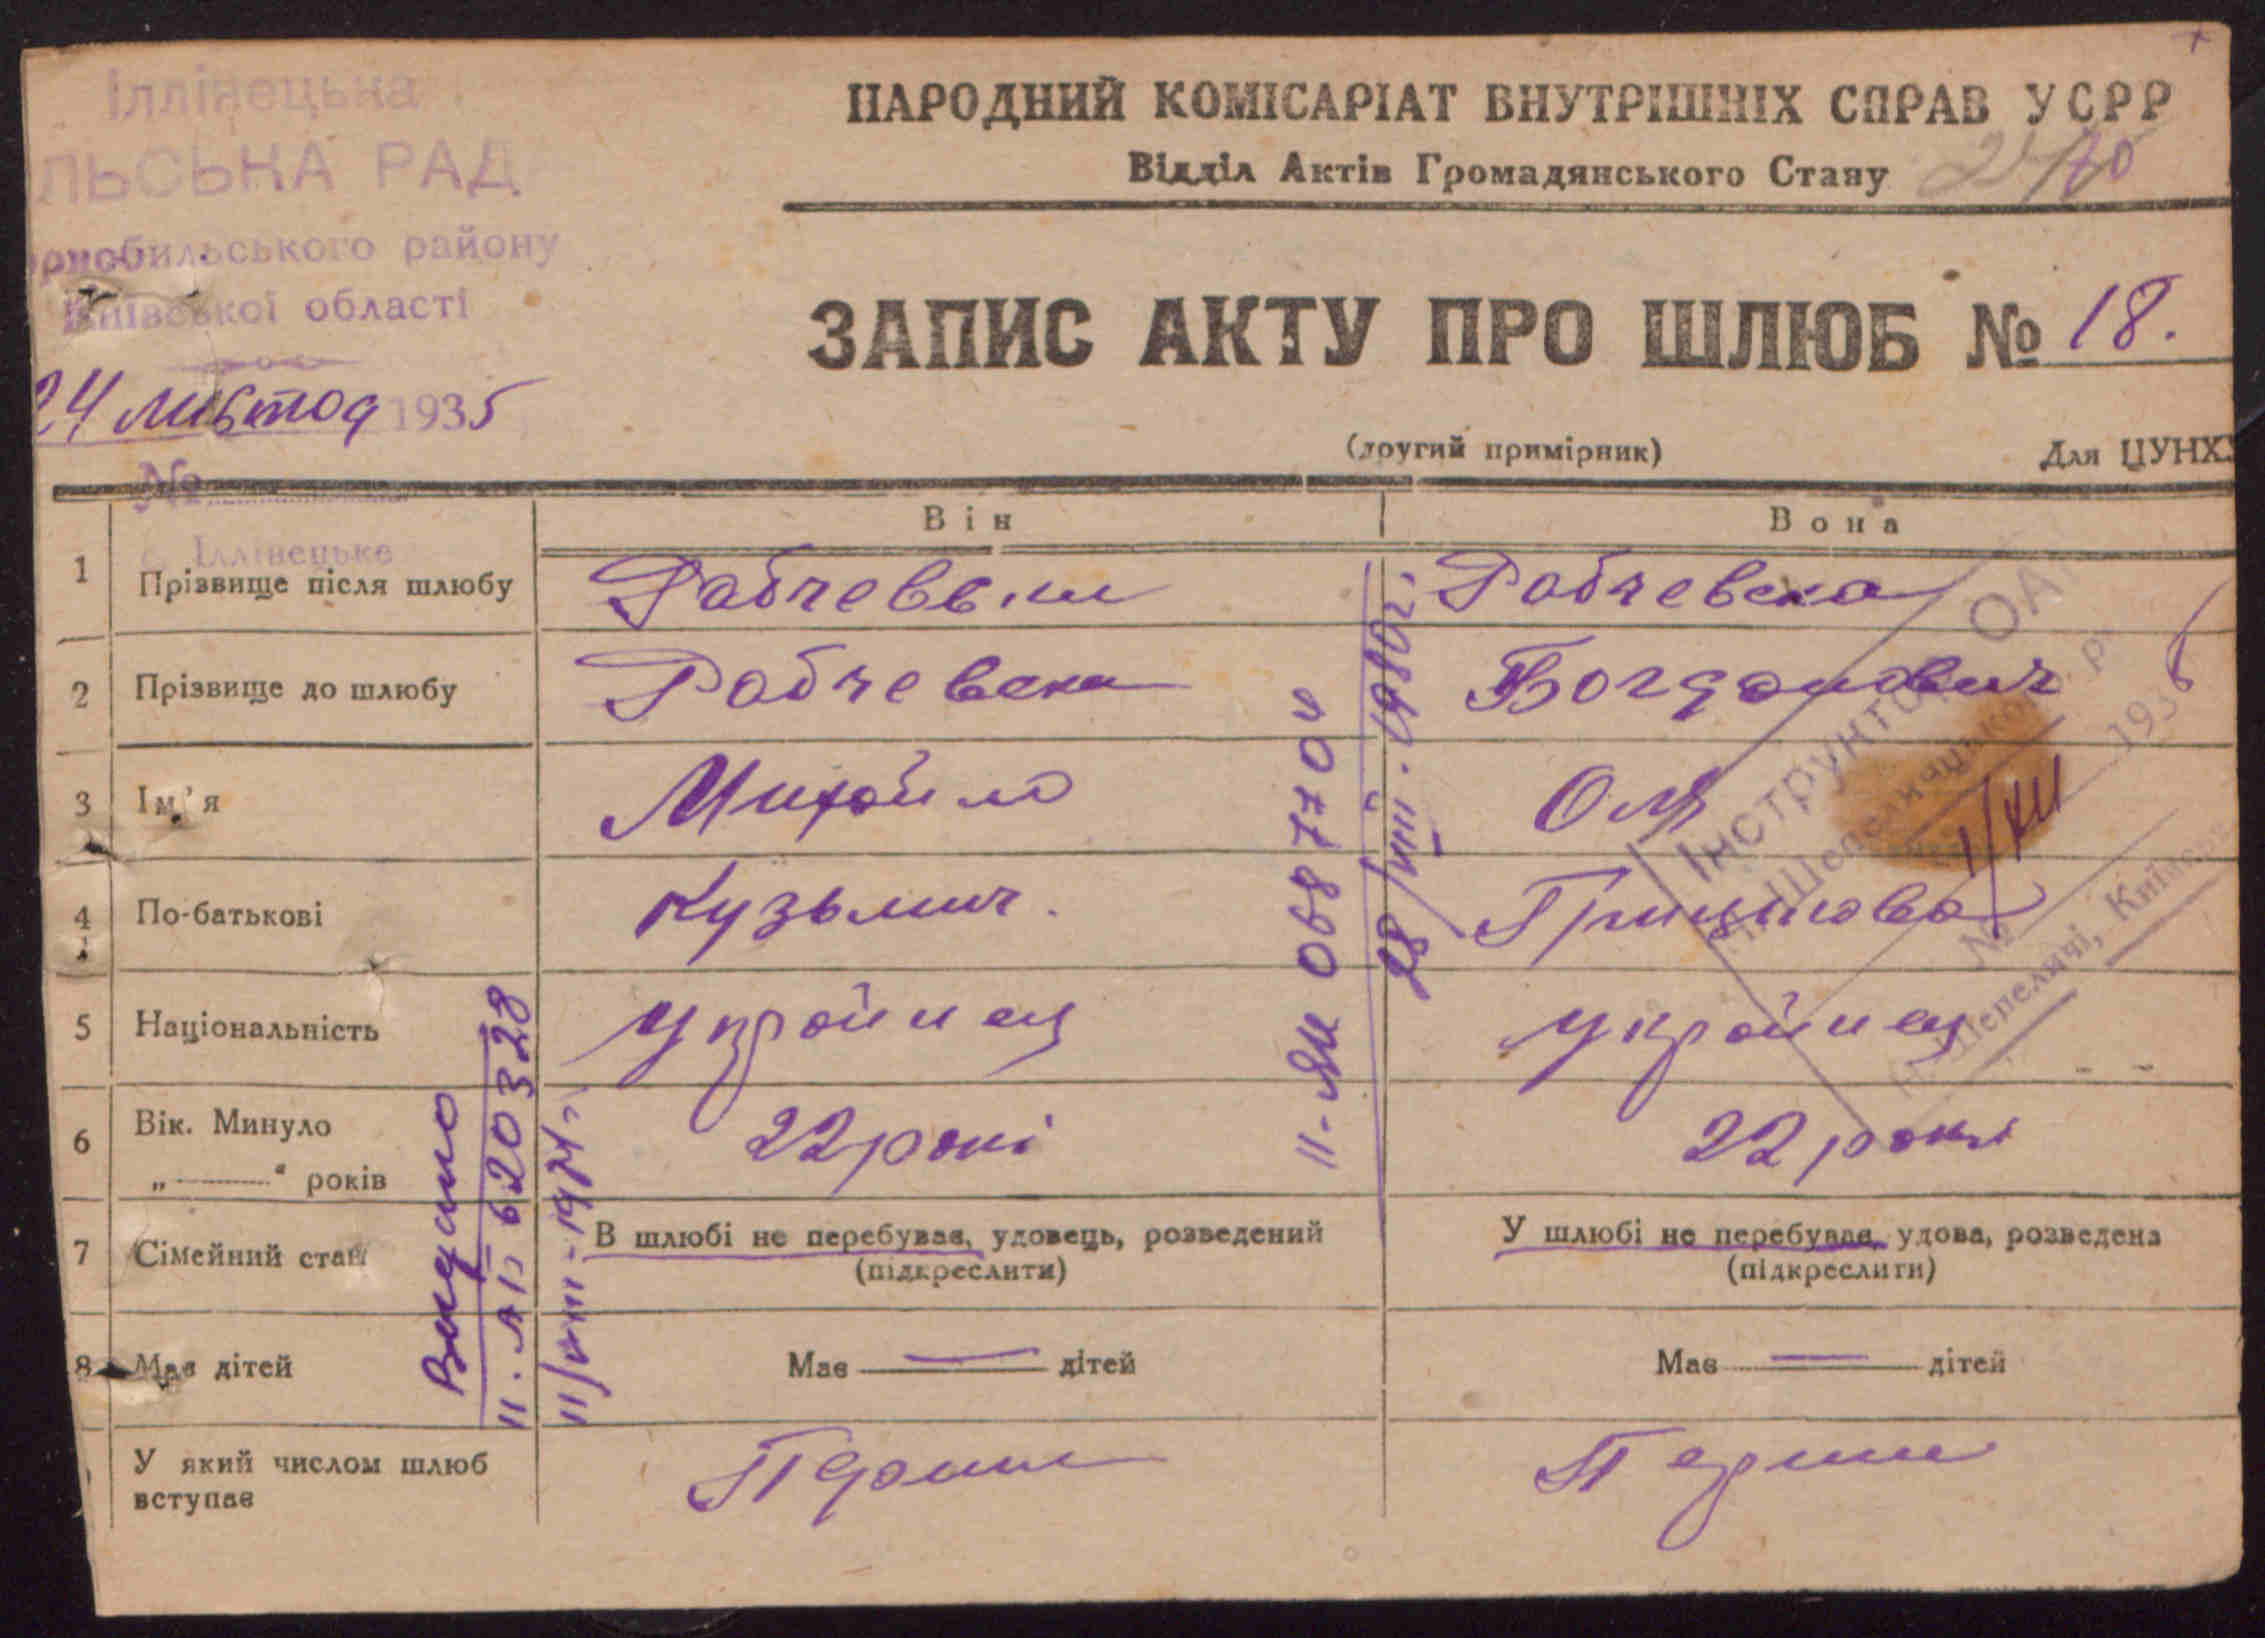 Іллінецька
ЛЬСЬКА РАД
орнобильського району
Київської області
24 листоод 1935
№
с. Іллінецьке
НАРОДНИЙ КОМІСАРІАТ ВНУТРІШНІХ СПРАВ УСРР
Відділ Актів Громадянського Стану
ЗАПИС АКТУ ПРО ШЛЮБ № 18.
(другий примірник) Для ЦУНХ
Він Вона
1 Прізвище після шлюбу Рабчевски Рабчевска
2 Прізвище до шлюбу Рабчевски Богданович
3 Ім'я Михайло Оля
4 По-батькові Кузьмич. Грицькова
5 Національність Українец Українец
6 Вік. Минуло 22 рокі 22 рокі
„ “ років
7 Сімейний стан В шлюбі не перебуває, удовець, розведений У шлюбі не перебуває, удова, розведена
(підкреслити) (підкреслити)
8 Має дітей Має — дітей Має — дітей
У який числом шлюб
вступає Перши Перши
Видано
620328
11/VIII-1974
068770
28/VIII.-1980г.
Інструктор ОА
1936
1/XII
№
Шепеличі, Київськ